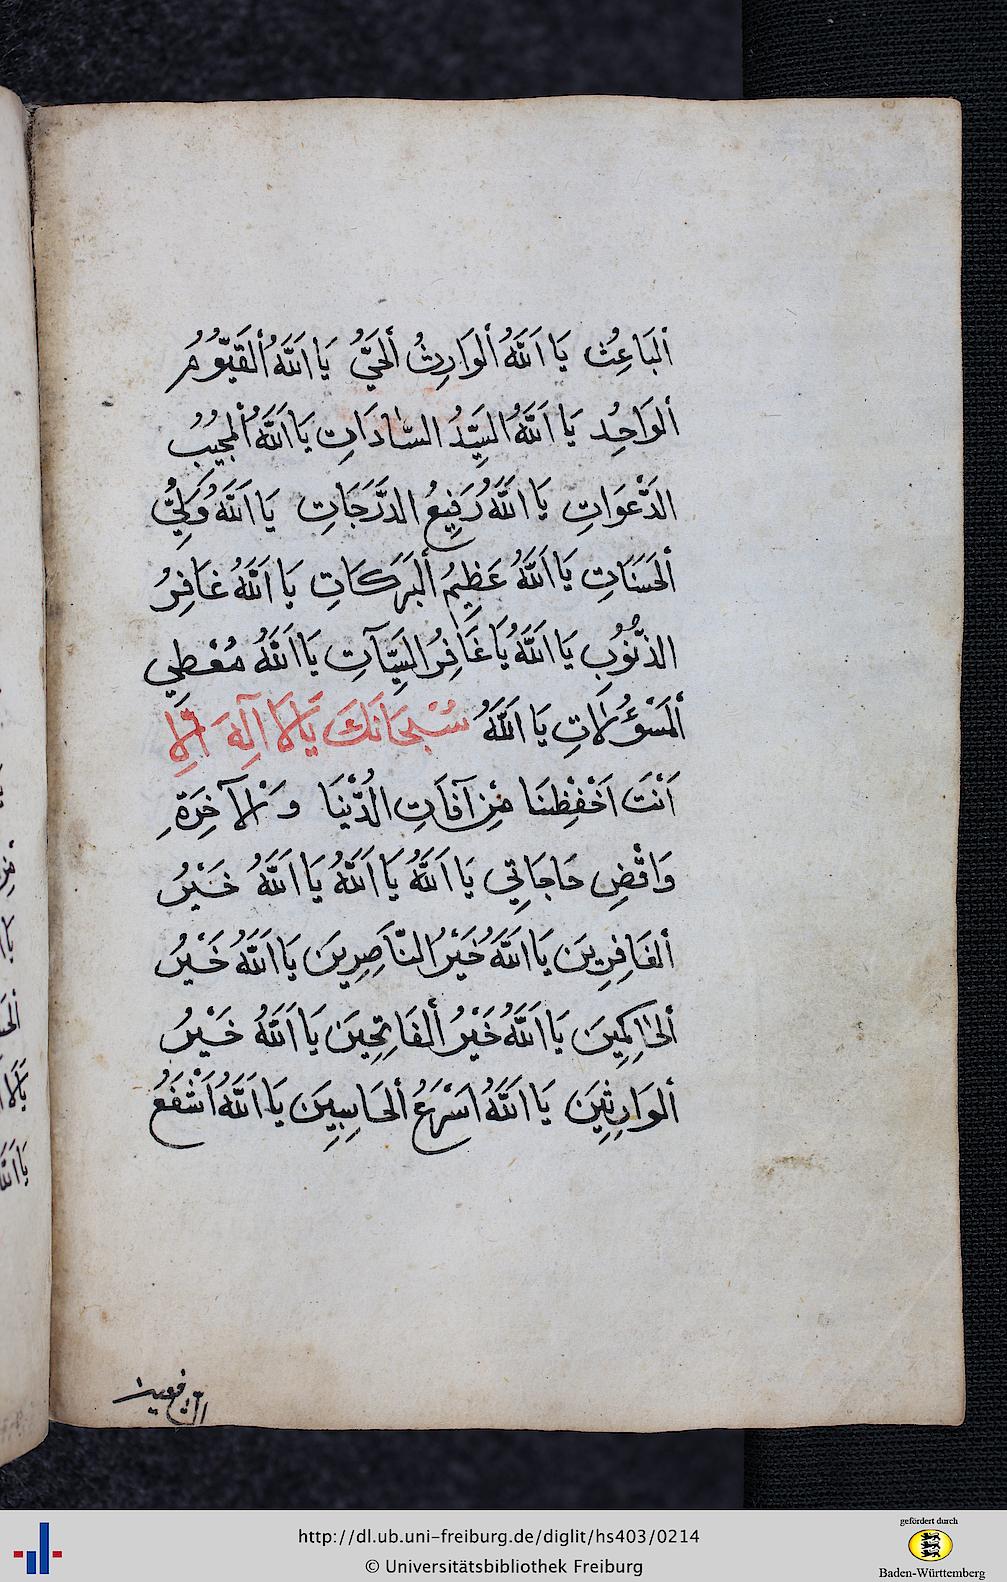 أَلْبَاعِثُ يَا اَللّٰهُ أَلْوَارِثُ أَلْحَيُّ يَا اَللّٰهُ أَلْقَيُّوُمُ
أَلْوَاحِدُ يَا اَللّٰهُ السَيِّدُ السَّادَاتِ يَا اَللّٰهُ أَلْمُجِيبُ
الدَّعْوَاتِ يَا اَللّٰهُ رَفِيعُ الدَّرَجَاتِ يَا اَللّٰهُ وَلِيُّ
أَلْحَسَنَاتِ يَا اَللّٰهُ عَظِيمُ أَلْبَرَكَاتِ يَا اَللّٰهُ غَافِرُ
الذُّنُوبِ يَا اَللّٰهُ يَا غَافِرُ السَيِّآتِ يَا اَللّٰهُ مُعْطِي
أَلْمَسْؤُلَاتِ يَا اَللّٰهُ سُبْحَانَكَ يَالَا آلِهَ اَلَّاِ
اَنْتَ اَحْفِظْنَا مِنْ آفَاتِ الدُّنْيَا وَالْآخِرَةِ
وَاقْضِ حَاجَاتِي يَا اَللّٰهُ يَا اَللّٰهُ يَا اَللّٰهُ خَيْرُ
أَلْغَافِرِينَ يَا اَللّٰهُ خَيْرُ النَّاصِرِينَ يَا اَللّٰهُ خَيْرُ
أَلْحَاكِمِينَ يَا اَللّٰهُ خَيْرُ أَلْفَاتِحِينَ يَا اَللّٰهُ خَيْرُ
أَلْوَارِثِينَ يَا اَللّٰهُ اَسْرَعُ أَلْحَاسِبِينَ يَا اَللّٰهُ اَشْفَعُ
http://dl.ub.uni-freiburg.de/diglit/hs403/0214
© Universitätsbibliothek Freiburg
gefördert durch
Baden-Württemberg